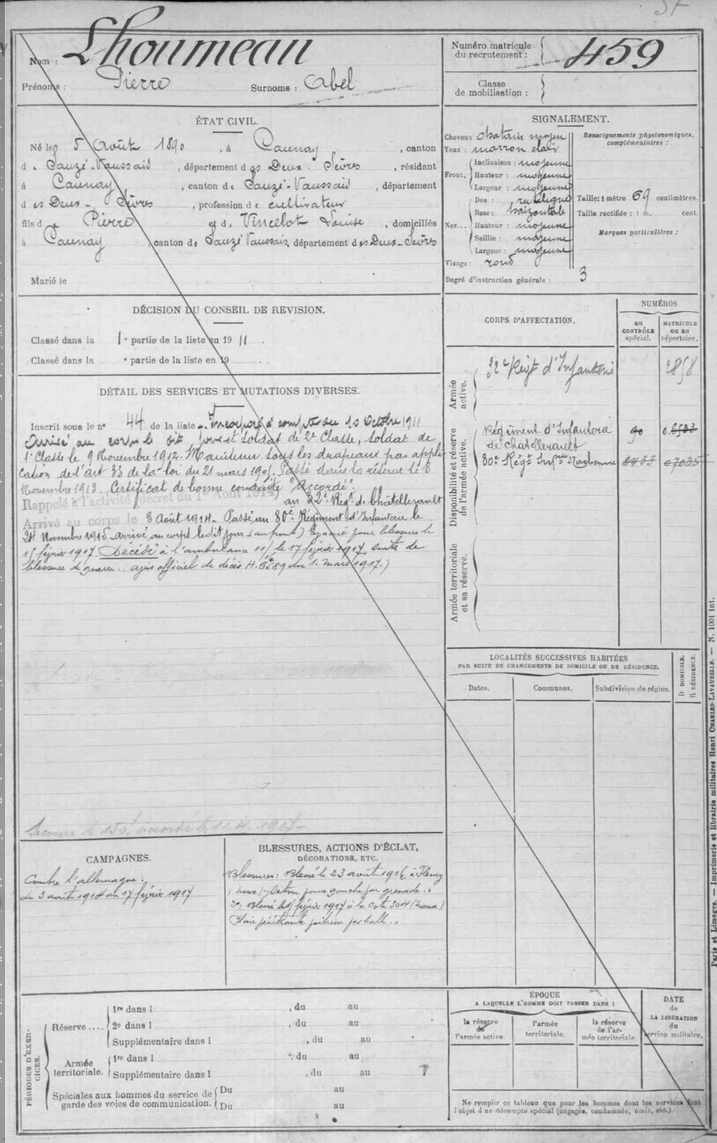 Nom : Lhoumeau
Prénoms : Pierre Surnoms : Abel
Numéro matricule du recrutement : 459
Classe de mobilisation :
ÉTAT CIVIL.
Né le 5 Août 1890, à Caunay, canton
d e Sauzé-Vaussais, département des Deux-Sèvres, résidant
à Caunay, canton de Sauzé-Vaussais, département
des Deux-Sèvres, profession de cultivateur
fils de Pierre et d Vincelot Louise, domiciliés
à Caunay, canton de Sauzé Vaussais, département des Deux-Sèvres
Marié le
SIGNALEMENT.
Cheveux : chatain moyen
Yeux : marron clair
Front, Inclinaison : moyenne
Hauteur : moyenne
Largeur : moyenne
Nez, Dos : rectiligne
Base : horizontale
Hauteur : moyenne
Saillie : moyenne
Largeur : moyenne
Visage : rond
Renseignements physionomiques, complémentaires :
Taille : 1 mètre 69 centimètres.
Taille rectifiée : 1 m. cent.
Marques particulières :
Degré d'instruction générale : 3
DÉCISION DU CONSEIL DE REVISION.
Classé dans la 1e partie de la liste en 1911
Classé dans la e partie de la liste en 19
DÉTAIL DES SERVICES ET MUTATIONS DIVERSES.
Inscrit sous le n° 44 de la liste. Incorporé à compter du 10 Octobre 1911
Arrivé au corps le dit jour et soldat de 2e Classe, soldat de
1e Classe le 9 Novembre 1912. Maintenu sous les drapeaux par appli
cation de l'art 33 de la loi du 21 mars 1905. Passé dans la réserve le 8
Novembre 1913. Certificat de bonne conduite "Accordé".
Rappelé à l'activité (décret du 1er Août 1914) au 32e Régt de Châtellerault
Arrivé au corps le 3 Août 1914. Passé au 80e Régiment d'Infanterie le
24 Novembre 1915 arrivé au corps ledit jour (au front) Evacué pour blessures le
15 février 1917. Décédé à l'ambulance 11/ le 17 février 1917 suite de
blessures de guerre. avis officiel de décès H. 6289 du 1. mars 1917.)
CORPS D'AFFECTATION.
NUMÉROS
AU CONTRÔLE spécial.
MATRICULE OU AU répertoire.
Armée active.
32e Régt d'Infanterie 2858
Disponibilité et réserve de l'armée active.
Régiment d'Infanterie de Châtellerault
80e Régt Inf Narbonne
Armée territoriale et sa réserve.
LOCALITÉS SUCCESSIVES HABITÉES
PAR SUITE DE CHANGEMENTS DE DOMICILE OU DE RÉSIDENCE.
Dates. Communes. Subdivision de région. D. DOMICILE. R. RÉSIDENCE.
CAMPAGNES.
Contre l'allemagne :
du 3 août 1914 au 17 février 1917
BLESSURES, ACTIONS D'ÉCLAT,
DÉCORATIONS, ETC.
Blessures : Blessé le 23 août 1916 à Fleury
(Meuse) gauche par grenade.
2° Blessé le 15 février 1917 à la cote 304 (Meuse)
Plaie pénétrante poitrine par balle.
PÉRIODES D'EXERCICES.
Réserve .... 1re dans l , du au
2e dans l , du au
Supplémentaire dans l , du au
Armée territoriale. 1re dans l , du au
Supplémentaire dans l , du au
Spéciales aux hommes du service de garde des voies de communication. Du au
Du au
ÉPOQUE
A LAQUELLE L'HOMME DOIT PASSER DANS :
la réserve de l'armée active. l'armée territoriale. la réserve de l'armée territoriale.
DATE de LA LIBÉRATION du service militaire.
Ne remplir ce tableau que pour les hommes dont les services font
l'objet d'un décompte spécial (engagés, condamnés, omis, etc.)
Paris et Limoges. — Imprimerie et librairie militaires Henri CHARLES-LAVAUZELLE. — N. 1001 int.